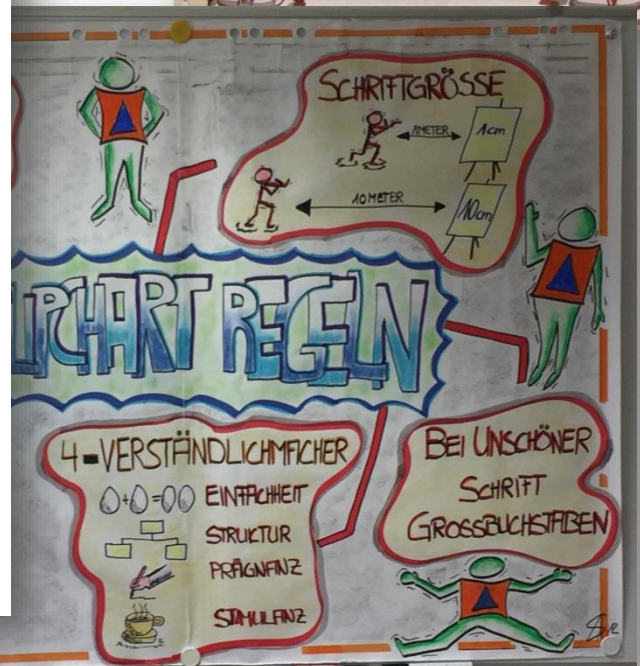 SCHRIFTGRÖSSE
1METER
1cm
10METER
10cm
LIPCHART REGELN
4-VERSTÄNDLICHMACHER
EINFACHHEIT
STRUKTUR
PRÄGNANZ
STIMULANZ
BEI UNSCHÖNER
SCHRIFT
GROSSBUCHSTABEN